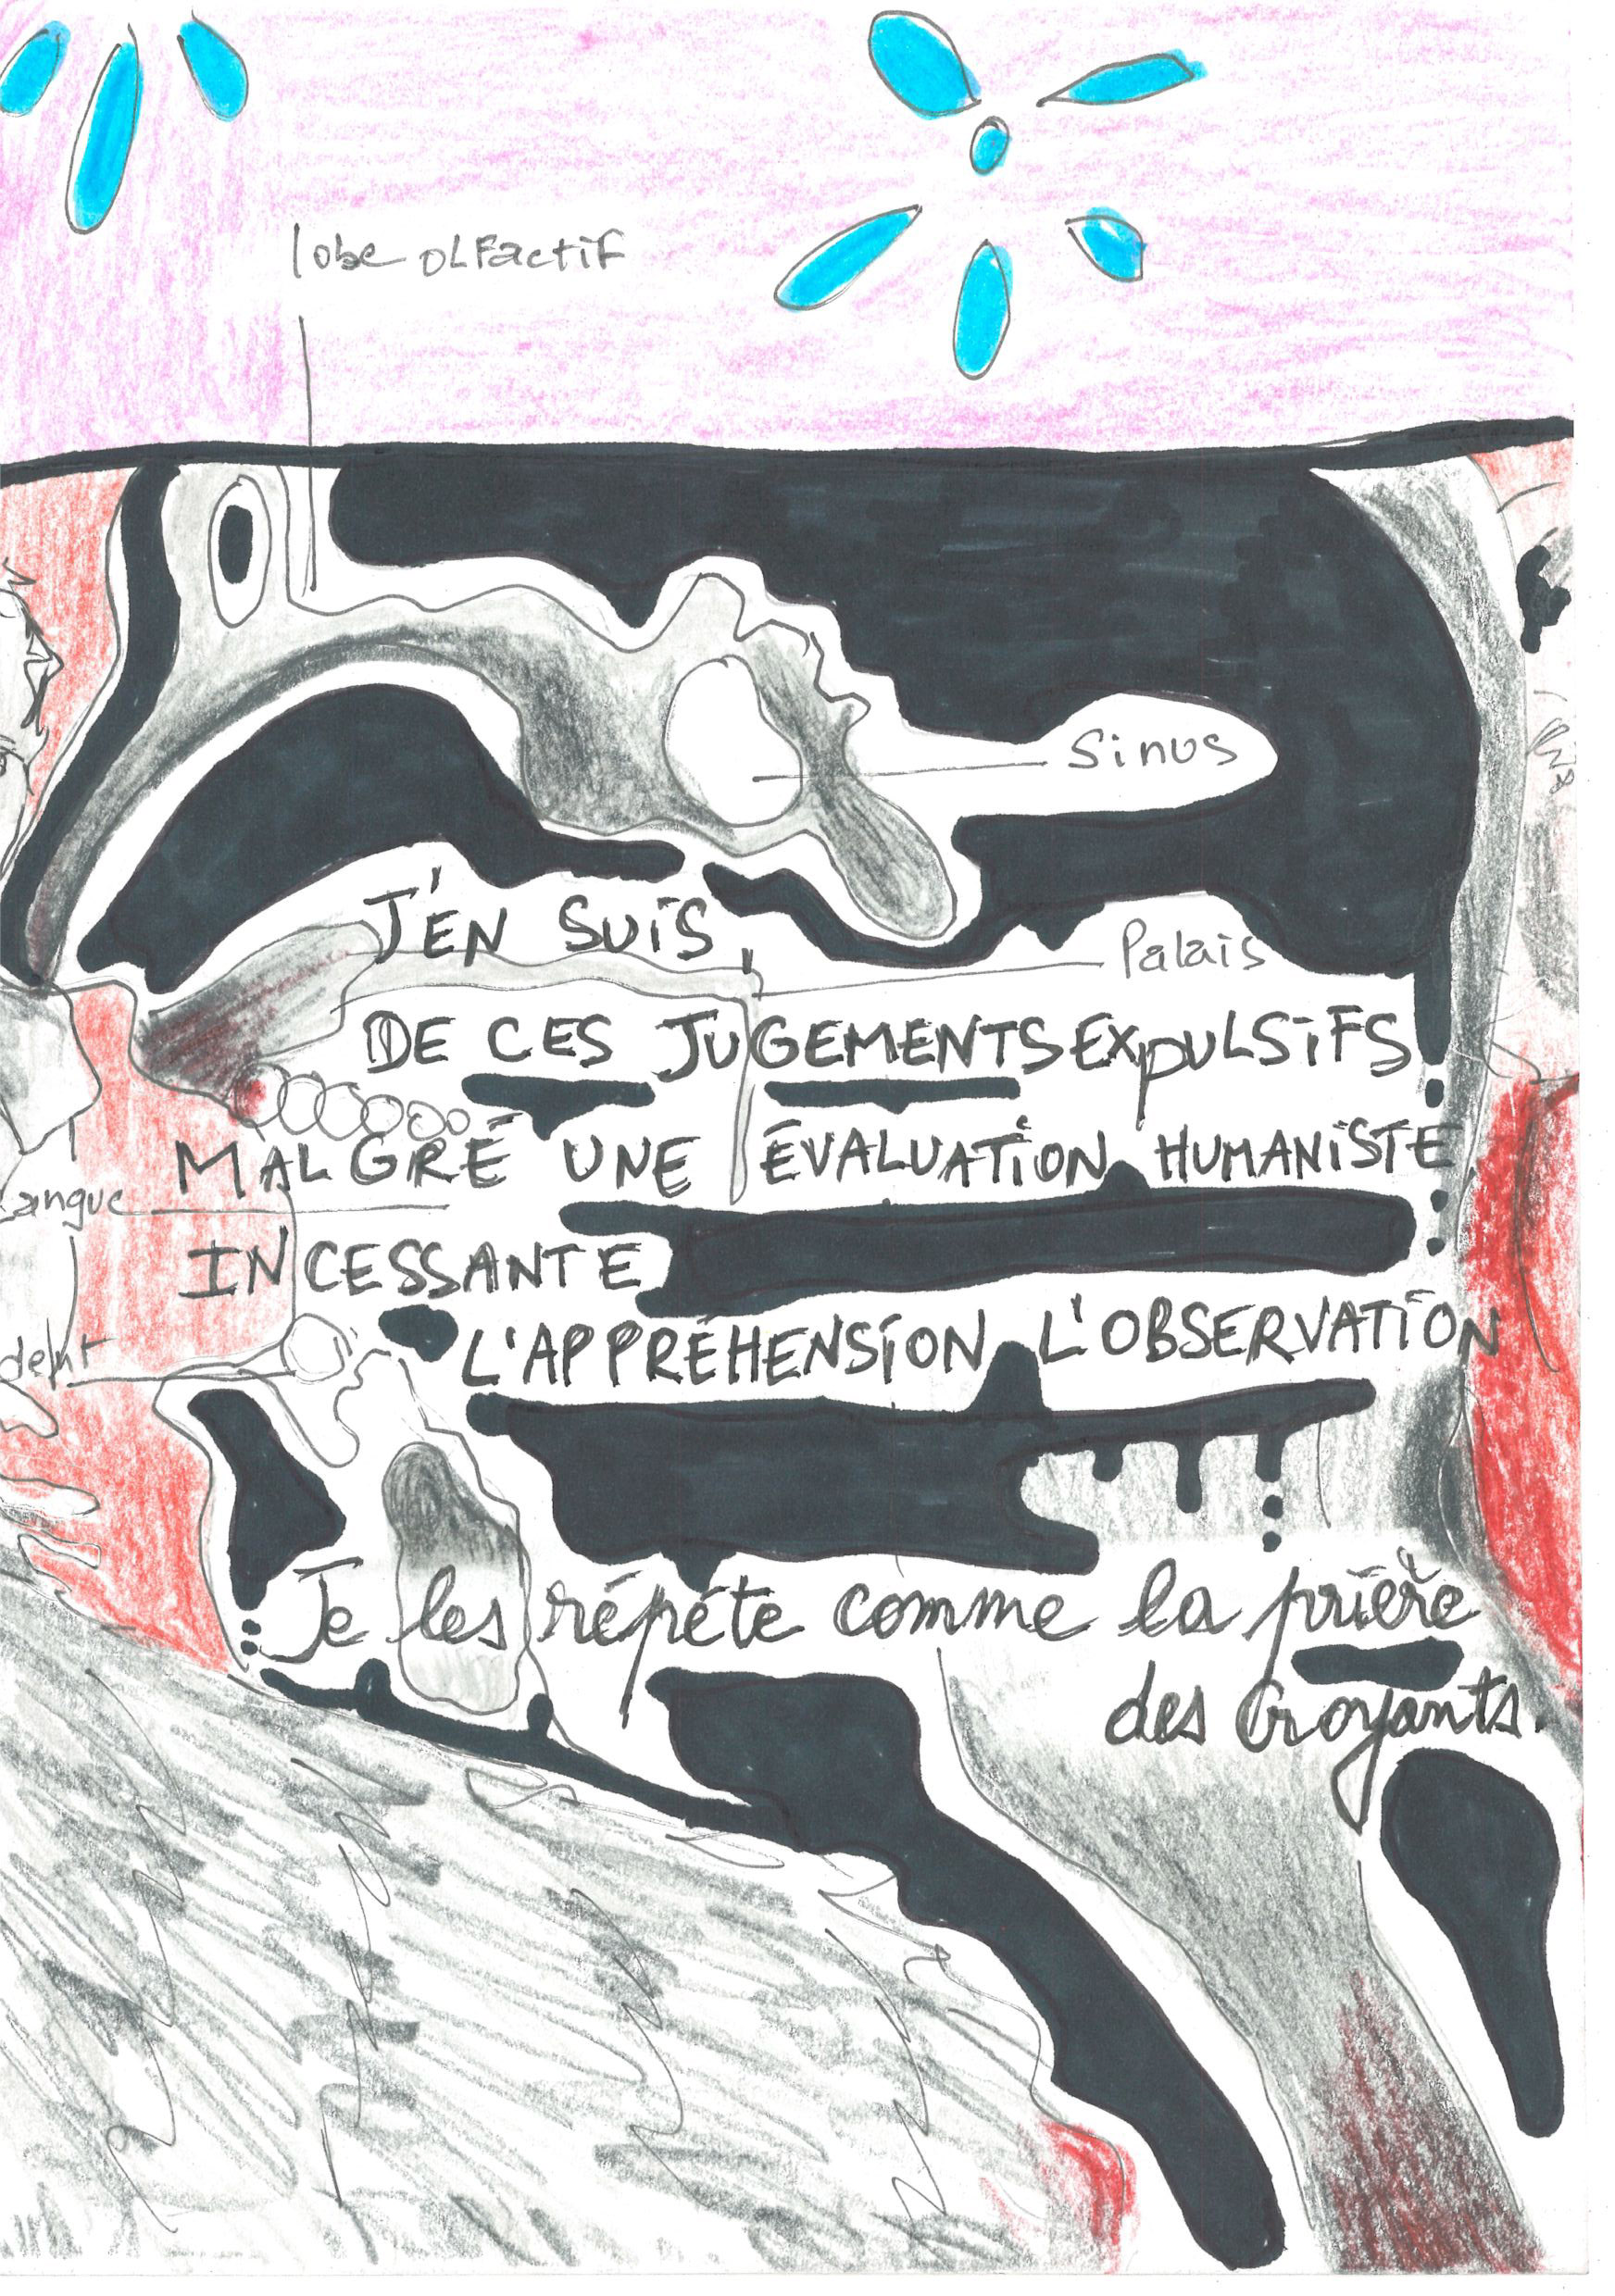 lobe olfactif
sinus
J'EN SUIS,
Palais
DE CES JUGEMENTS EXpULSIFS
MALGRÉ UNE ÉVALUATION HUMANISTE
Langue
INCESSANTE
L'APPRÉHENSION L'OBSERVATION
dent
Je les répéte comme la prière
des Croyants.